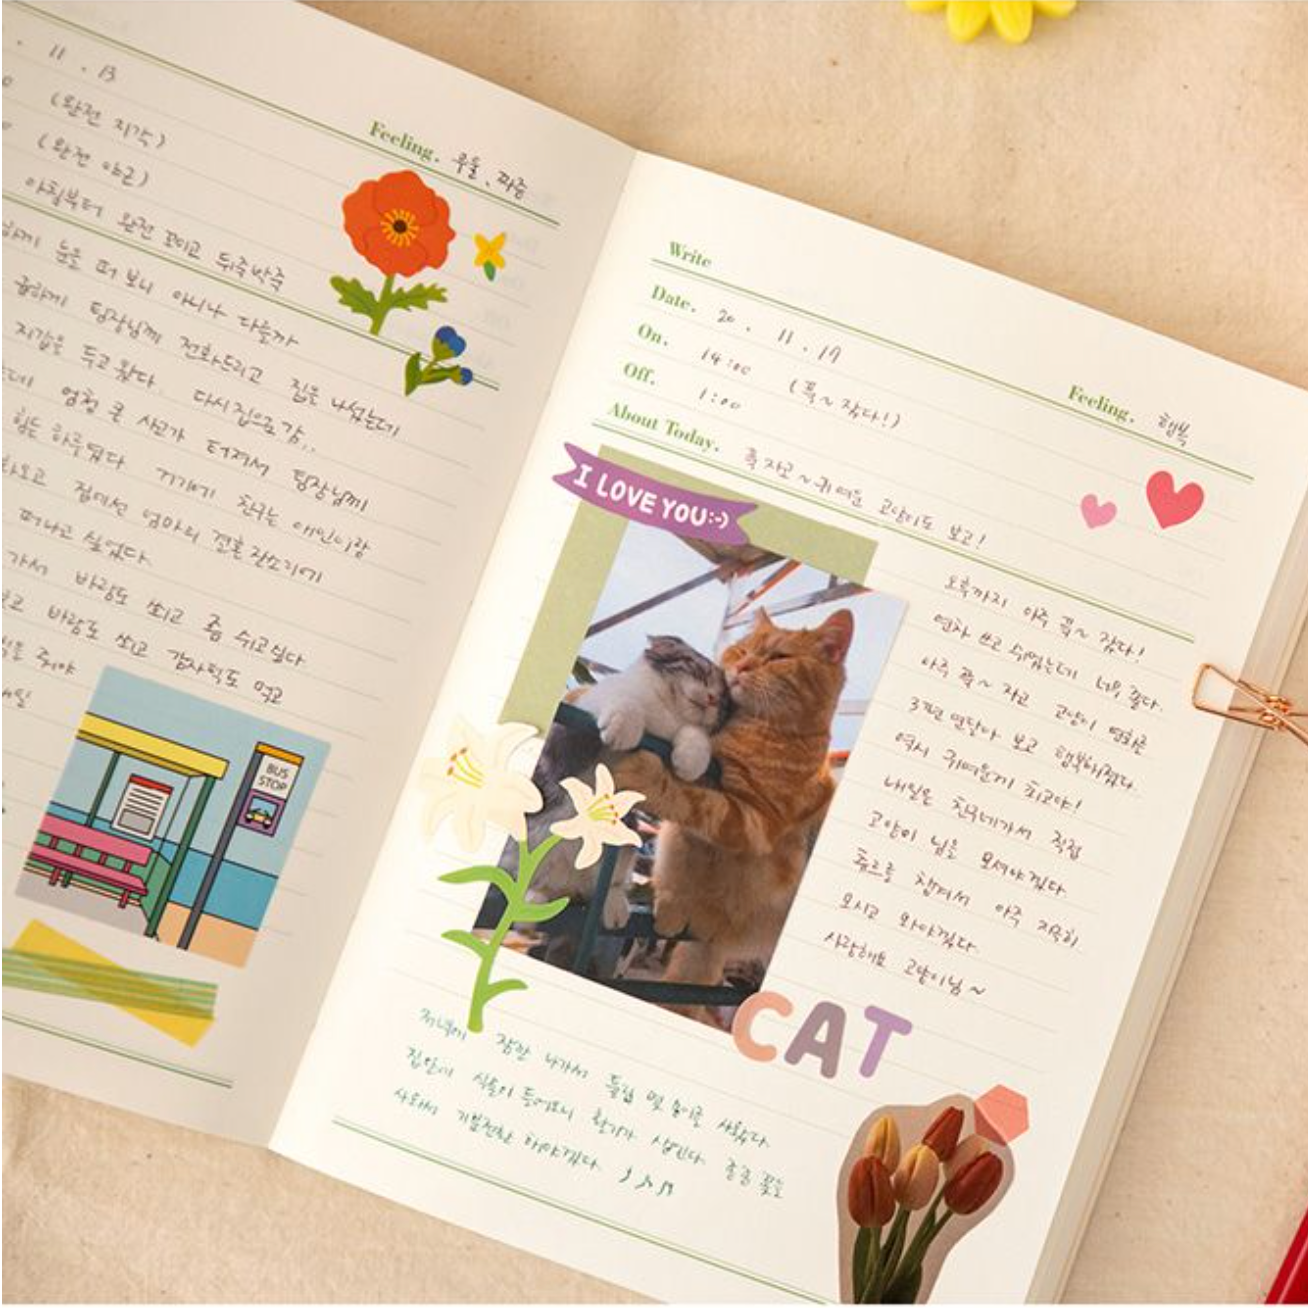 . 11 . 13
(완전 지각)
(완전 야근)
Feeling. 우울, 짜증
아침부터 완전 꼬이고 뒤죽박죽
하게 눈을 떠 보니 아니나 다를까
급하게 팀장님께 전화드리고 집을 나섰는데
지갑을 두고 왔다. 다시 집으로 감..
엄청 큰 사고가 터져서 팀장님께
힘든 하루였다 거기에 친구는 애인이랑
집에선 엄마의 결혼 잔소리에
떠나고 싶었다.
가서 바람도 쐬고 좀 쉬고싶다
바람도 쐬고 감자떡도 먹고
BUS
STOP
Write
Date. 20 . 11 . 17
On. 14:00 (푹~ 잤다!)
Off. 1:00
Feeling. 행복
About Today. 푹 자고~ 귀여운 고양이도 보고!
I LOVE YOU:-)
오후까지 아주 푹~ 잤다!
연차 쓰고 쉬었는데 너무 좋다.
아주 푹~ 자고 고양이 영화를
3편 연달아 보고 행복해졌다.
역시 귀여운게 최고야!
내일은 친구네가서 직접
고양이 님을 모셔야겠다.
츄르를 챙겨서 아주 지극히
모시고 와야겠다.
사랑해요 고양이님~
CAT
저녁에 잠깐 나가서 튤립 몇 송이를 사왔다.
집안에 식물이 들어오니 활기가 생긴다. 종종 꽃을
사와서 기분전환 해야겠다.